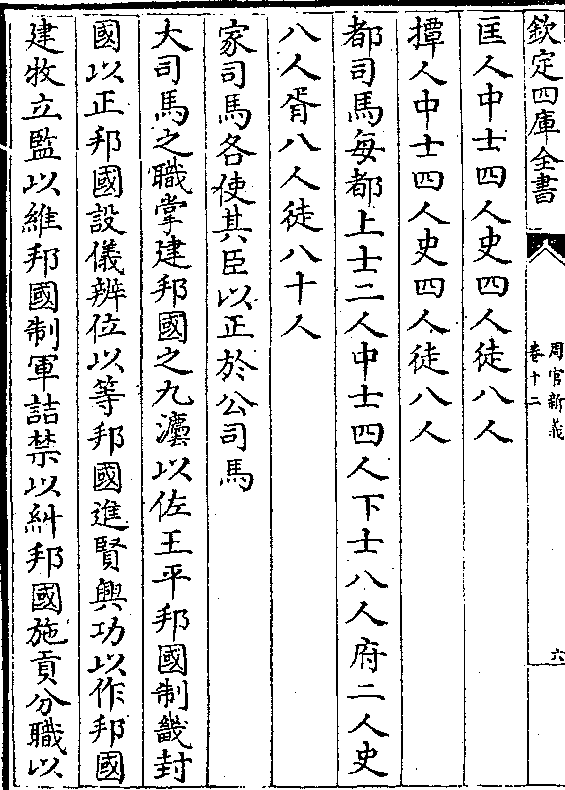 欽定四庫全書
周官新義
卷十二
六
匡人中士四人史四人徒八人
撢人中士四人史四人徒八人
都司馬每都上士二人中士四人下士八人府二人史
八人胥八人徒八十人
家司馬各使其臣以正於公司馬
大司馬之職掌建邦國之九灋以佐王平邦國制畿封
國以正邦國設儀辨位以等邦國進賢興功以作邦國
建牧立監以維邦國制軍詰禁以糾邦國施貢分職以